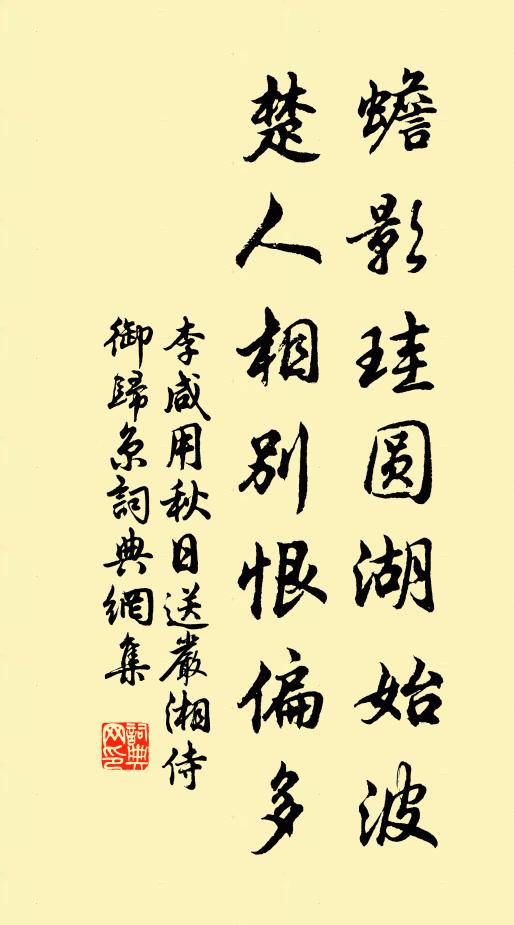 蟾影珪圆湖始波
楚人相别恨偏多
李咸用秋日送嚴湘侍
御歸京詞典網集
詞典
网印